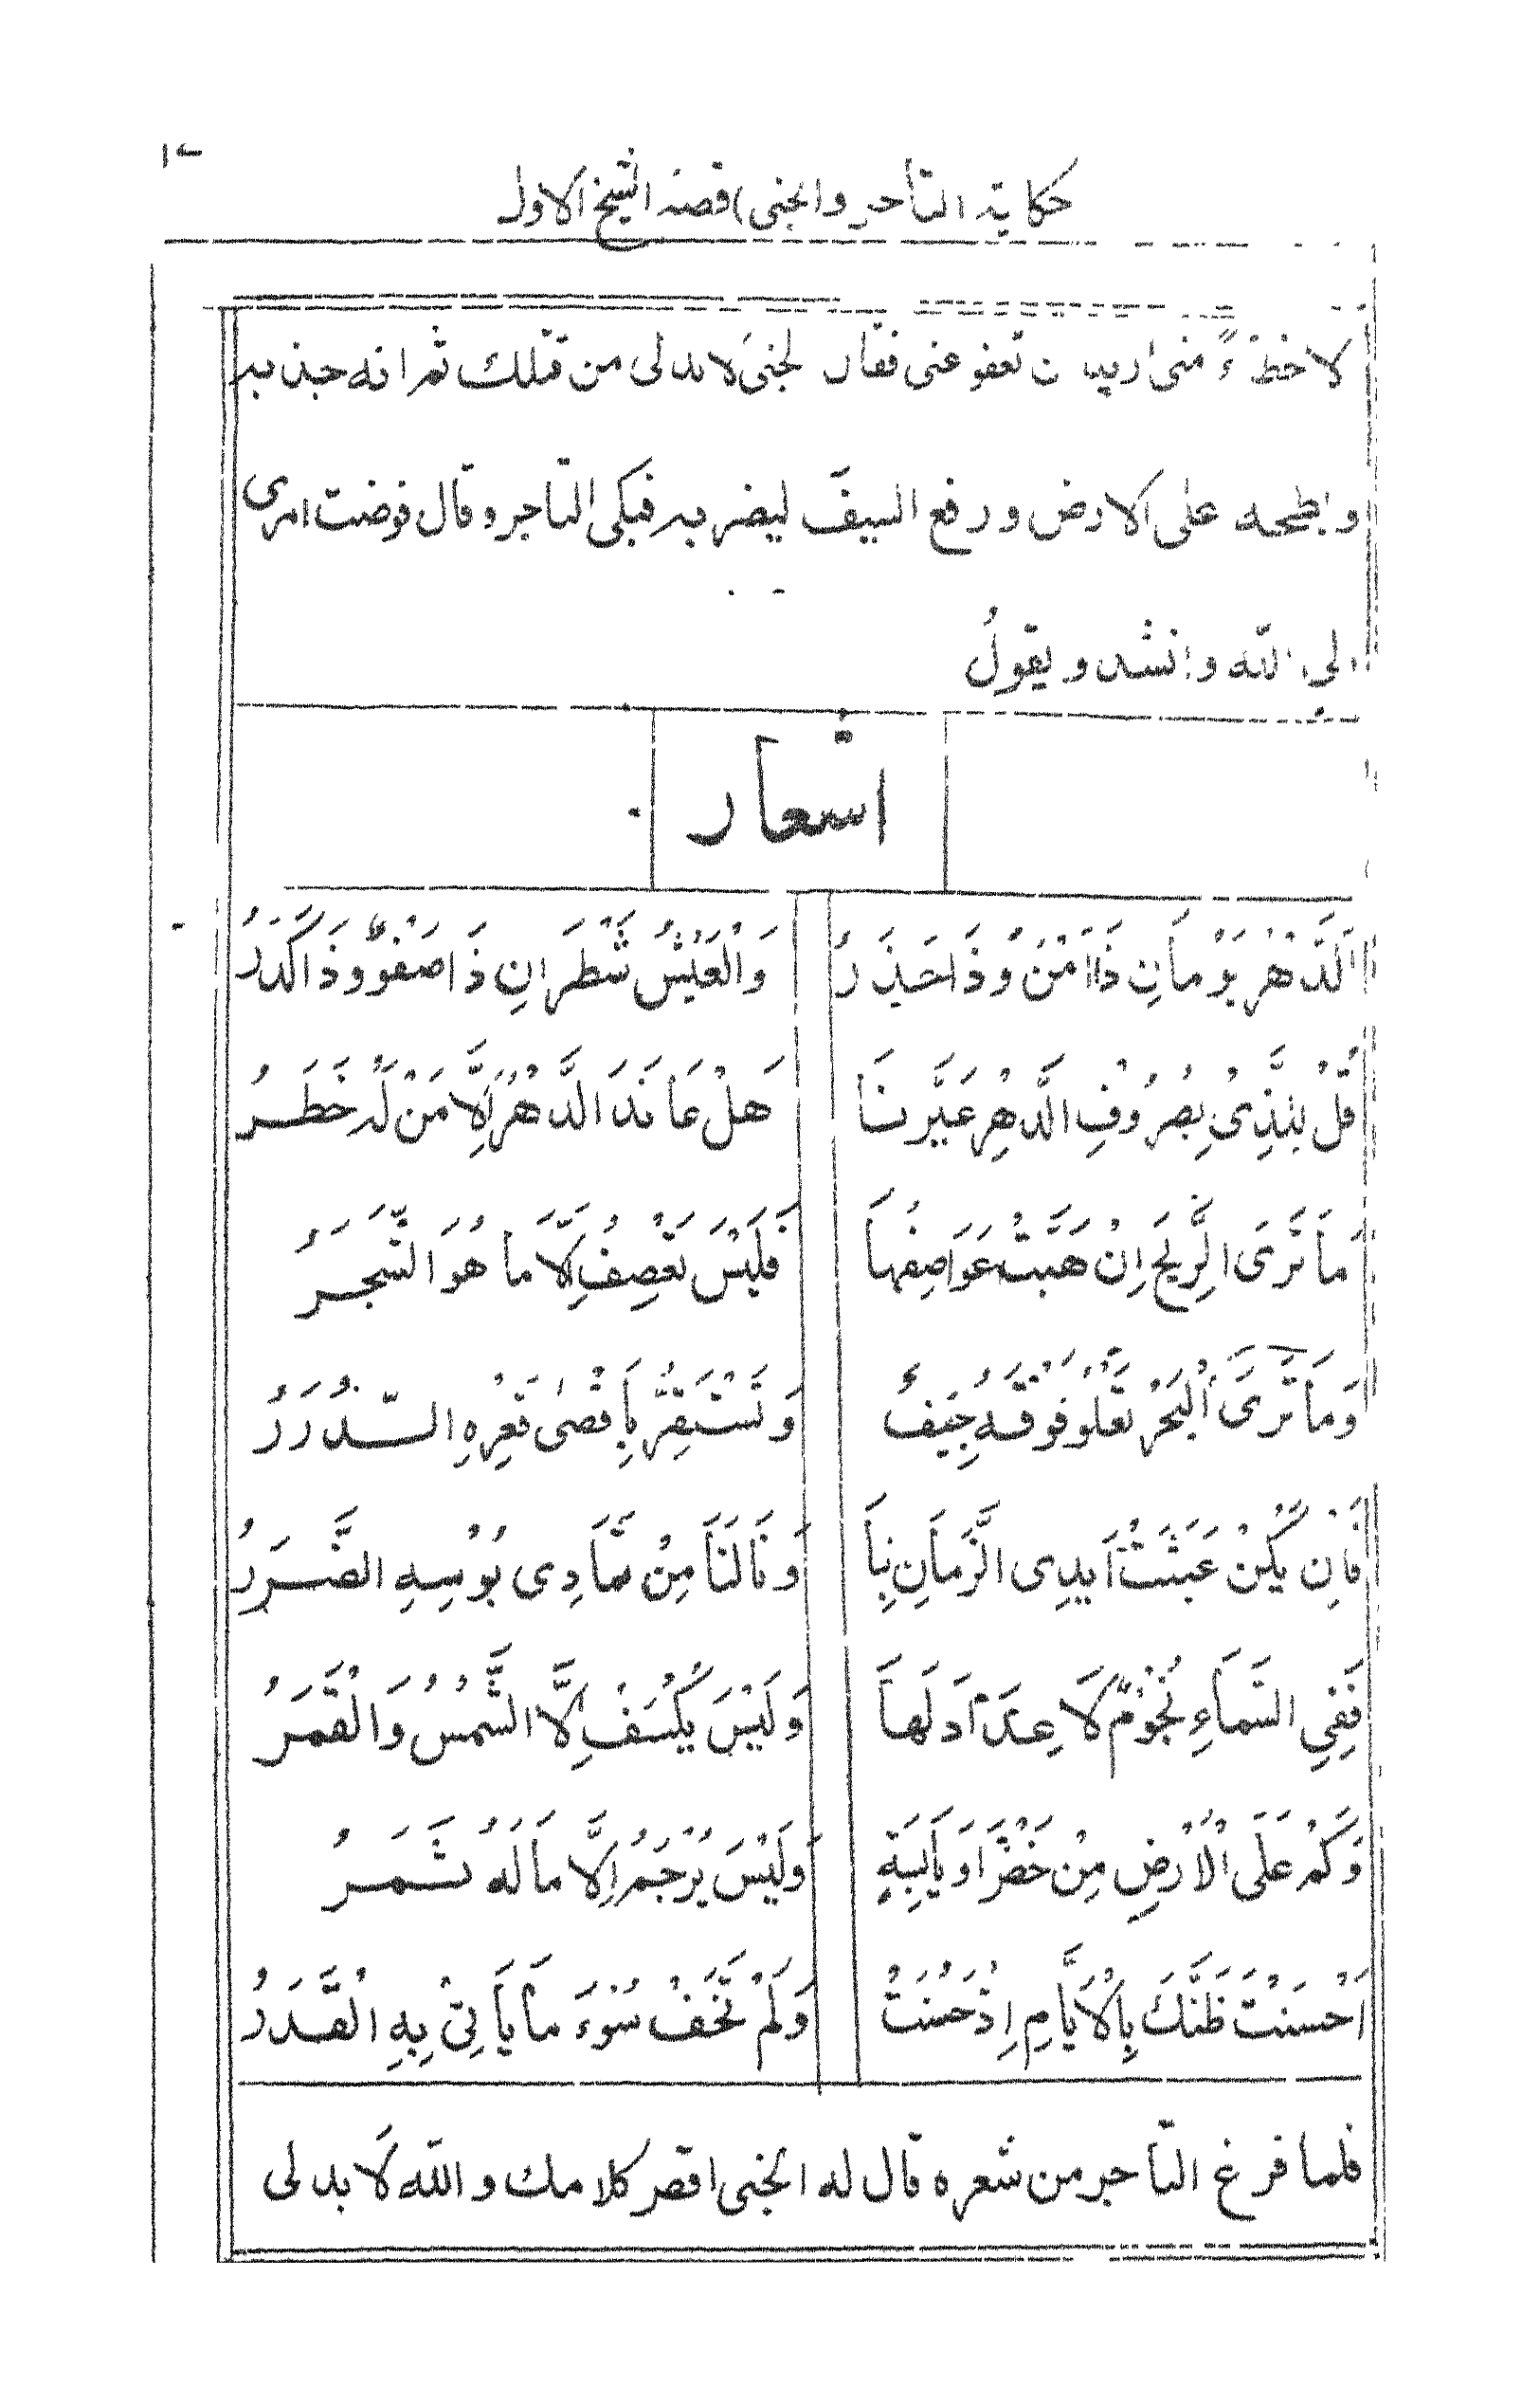 حكاية التاجر والجني) قصة الشيخ الاول
لا خطأ منى اريد ان تعفو عنى فقال الجنى لا بد لى من قتلك ثم انه جذبه
وبطحه على الارض ورفع السيف ليضربه فبكى التاجر وقال فوضت امرى
الى الله وانشد ويقولُ
اشعار
اَلدَّهْرُ يَوْمَانِ ذَا اَمْنٌ وَذَا حَذَرُ
وَالْعَيْشُ شَطْرَانِ ذَا صَفْوٌ وَذَا كَدَرُ
قُلْ لِلَّذِىْ بِصُرُوْفِ الدَّهْرِ عَيَّرَنَا
هَلْ عَانَدَ الدَّهْرُ اِلَّا مَنْ لَهُ خَطَرُ
مَا تَرَى الرِّيْحَ اِنْ هَبَّتْ عَوَاصِفُهَا
فَلَيْسَ تَعْصِفُ اِلَّا مَا هُوَ الشَّجَرُ
وَمَا تَرَى الْبَحْرَ تَعْلُوْ فَوْقَهُ جِيَفٌ
وَتَسْتَقِرُّ بِاَقْصٰى قَعْرِهِ الدُّرَرُ
فَاِنْ يَكُنْ عَبَثَتْ اَيْدِى الزَّمَانِ بِنَا
وَنَالَنَا مِنْ تَمَادِى بُوْسِهِ الضَّرَرُ
فَفِي السَّمَاءِ نُجُوْمٌ لَا عِدَادَ لَهَا
وَلَيْسَ يُكْسَفُ اِلَّا الشَّمْسُ وَالْقَمَرُ
وَكَمْ عَلَى الْاَرْضِ مِنْ خَضْرَا وَيَابِسَةٍ
وَلَيْسَ يُرْجَمُ اِلَّا مَا لَهُ ثَمَرُ
اَحْسَنْتَ ظَنَّكَ بِالْاَيَّامِ اِذْ حَسُنَتْ
وَلَمْ تَخَفْ سُوْءَ مَا يَاْتِىْ بِهِ الْقَدَرُ
فلما فرغ التاجر من شعره قال له الجنى اقصر كلامك والله لا بد لى